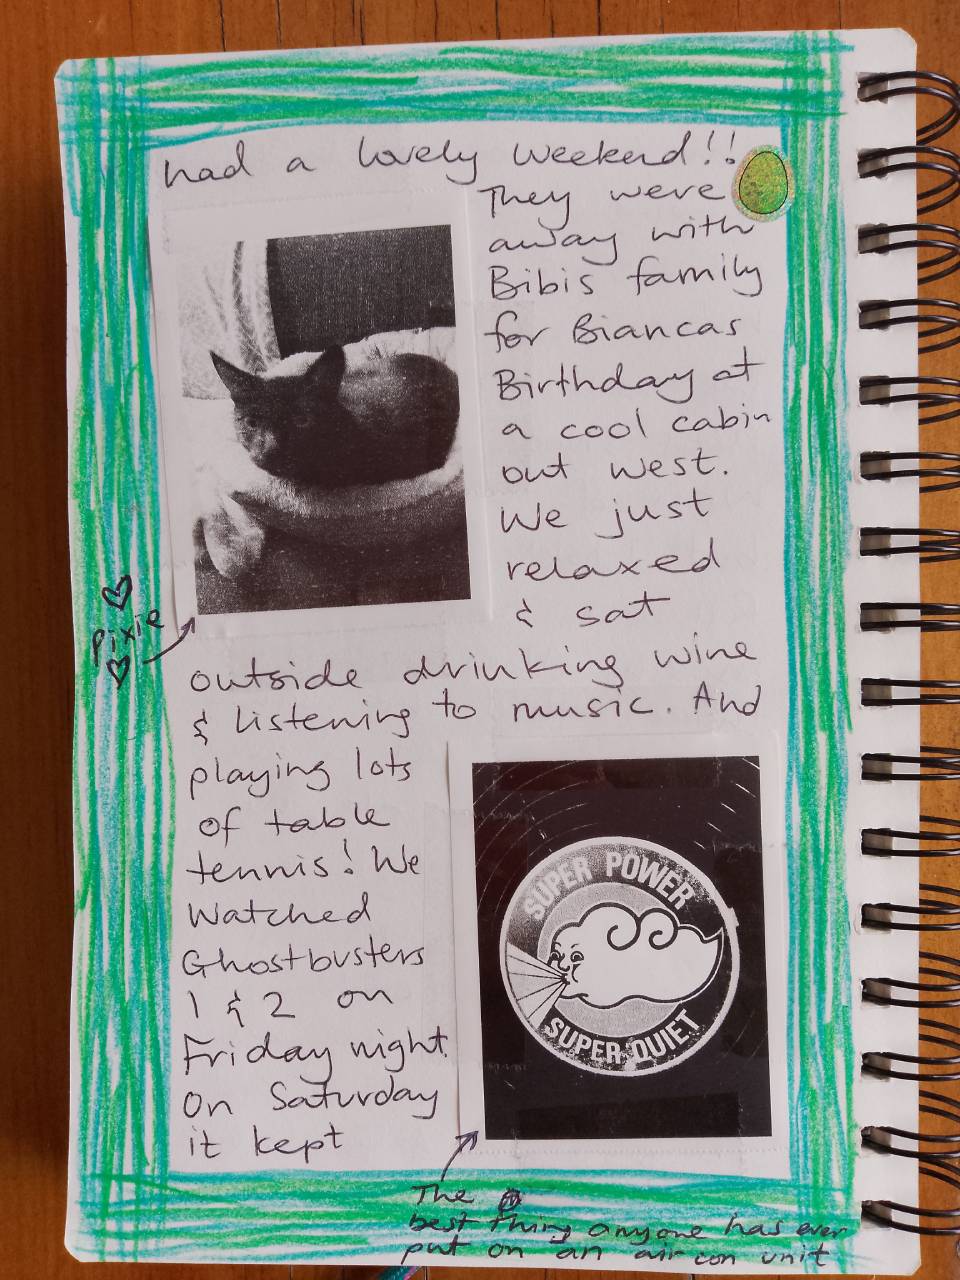 had a lovely weekend!!
They were
away with
Bibis family
for Biancas
Birthday at
a cool cabin
out west.
We just
relaxed
& sat
outside drinking wine
& listening to music. And
playing lots
of table
tennis! We
Watched
Ghostbusters
1 & 2 on
Friday night.
On Saturday
it kept
Pixie
SUPER POWER
SUPER QUIET
The
best thing anyone has ever
put on an air con unit